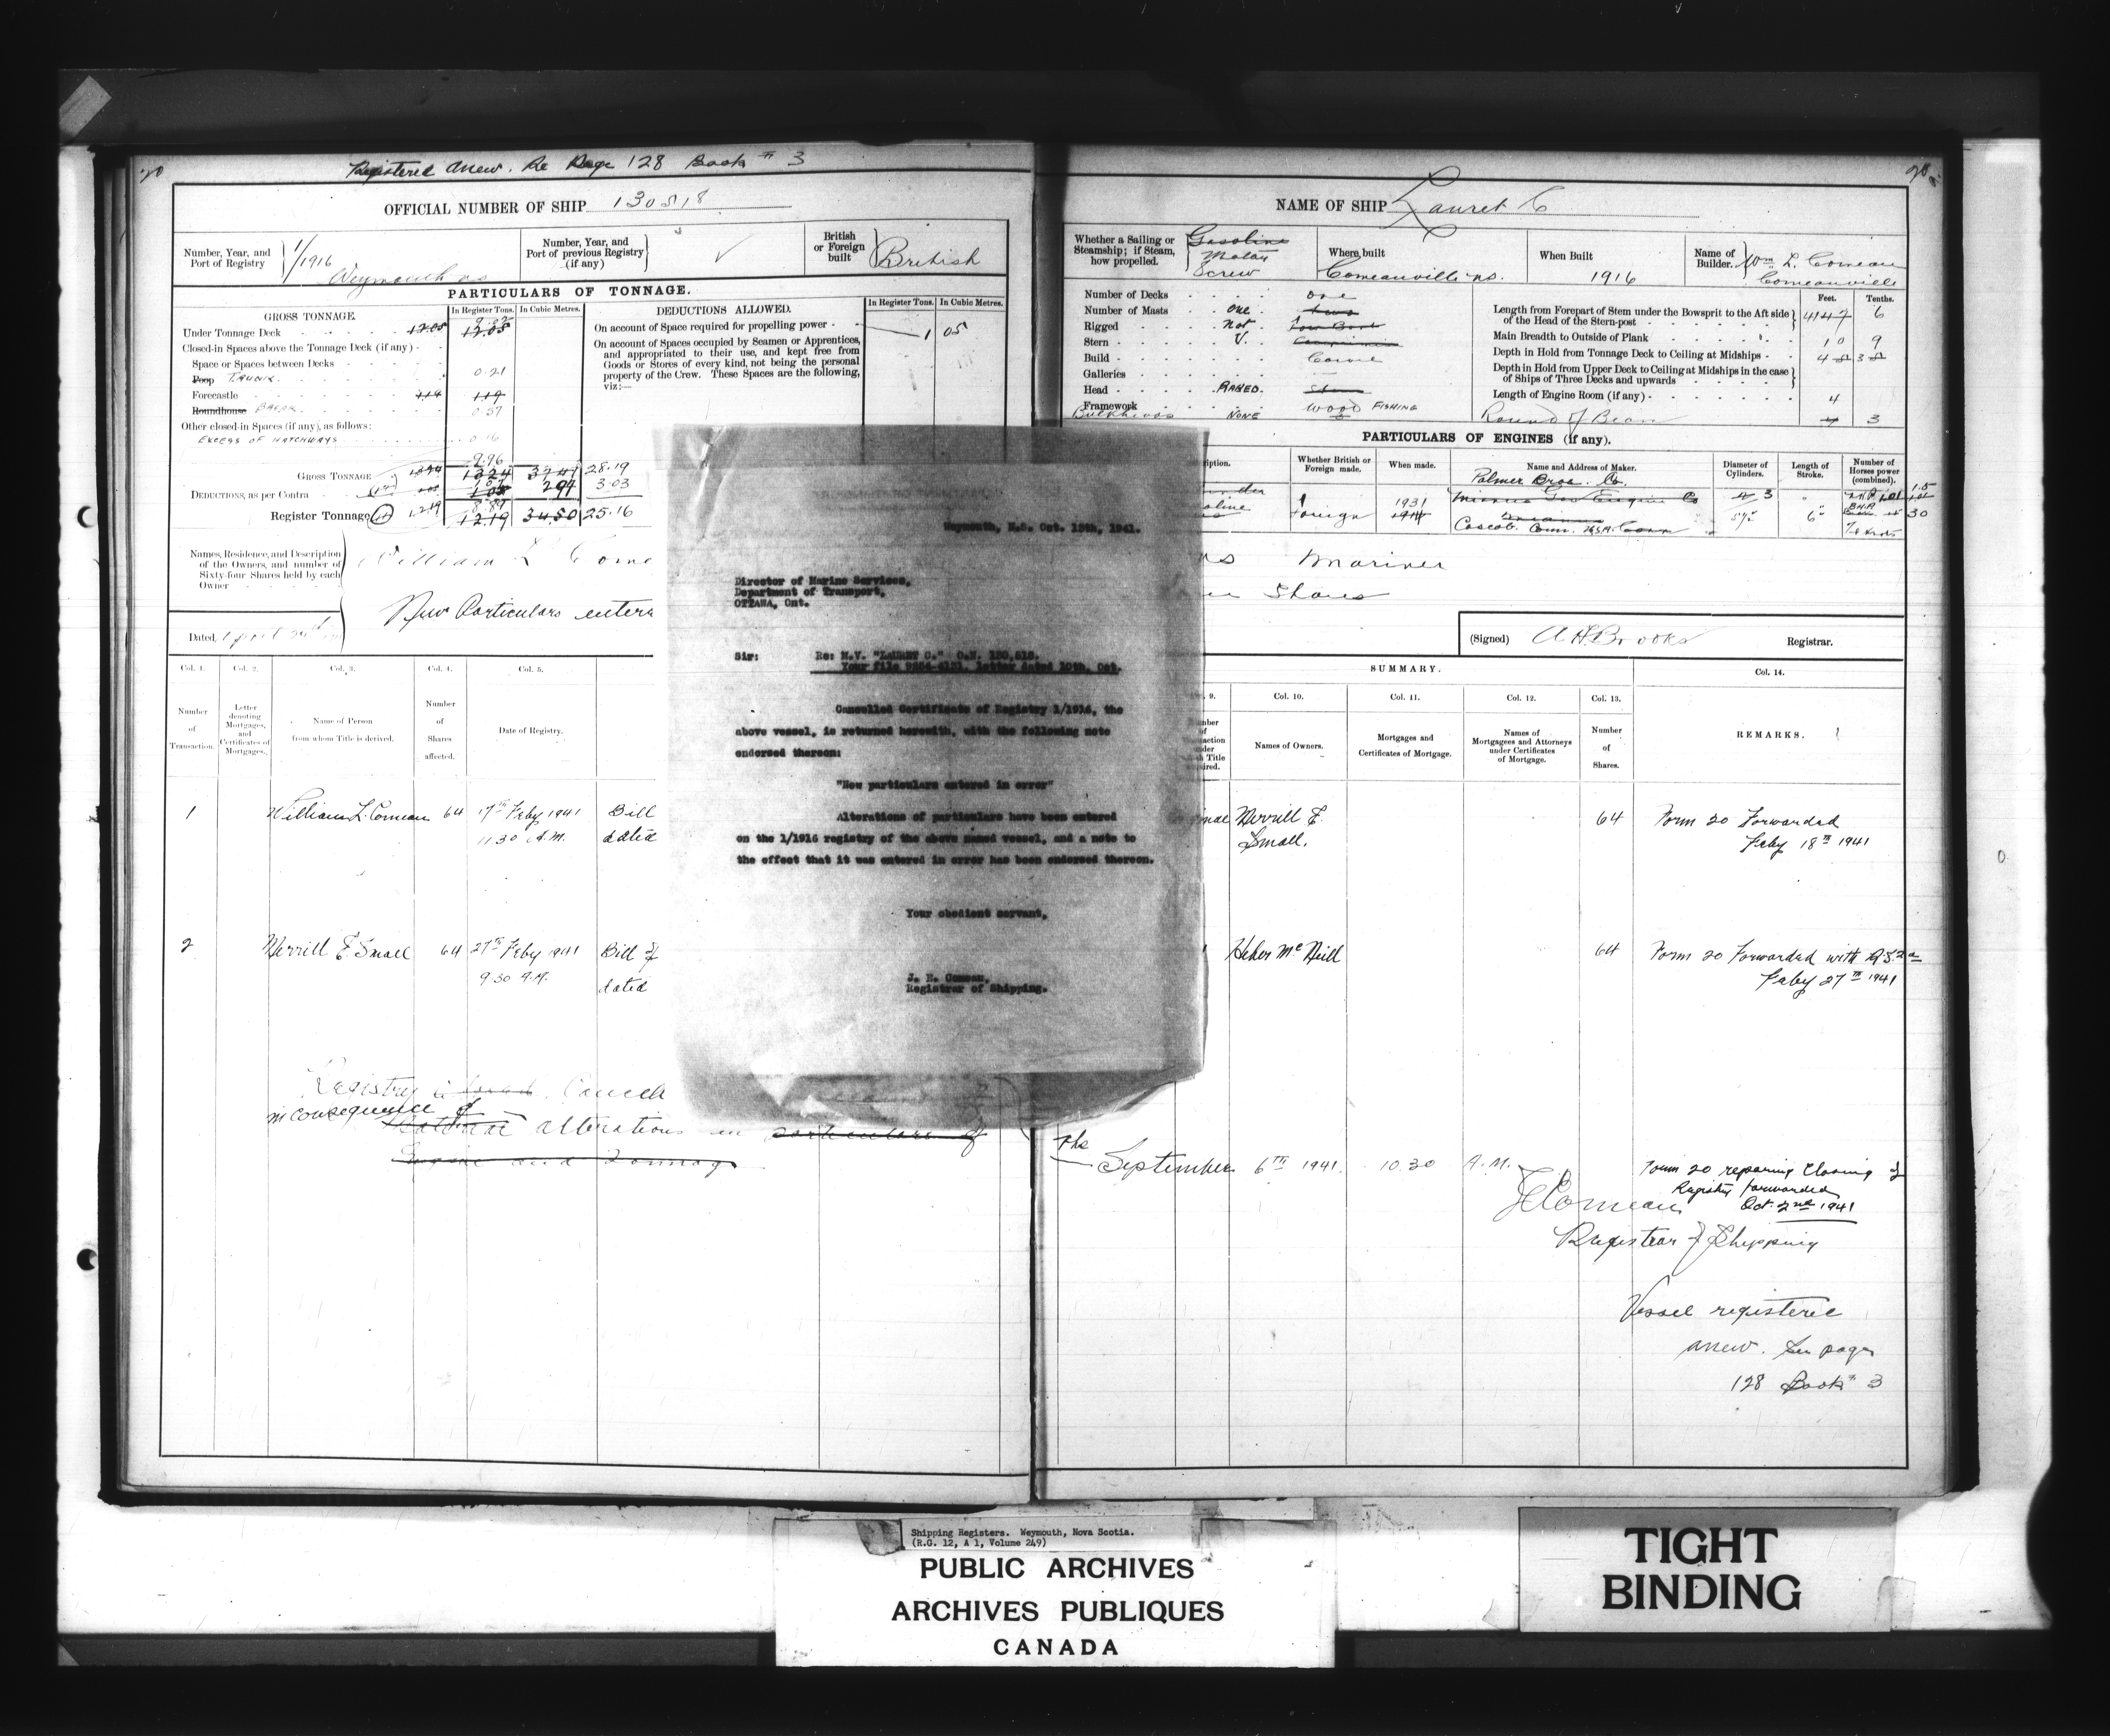 20
Registered anew. Re Page 128 Book # 3
OFFICIAL NUMBER OF SHIP 130518
Number, Year, and Port of Registry
1/1916
Weymouth NS
Number, Year, and Port of previous Registry (if any)
British or Foreign built
British
PARTICULARS OF TONNAGE.
GROSS TONNAGE.
In Register Tons.
In Cubic Metres.
DEDUCTIONS ALLOWED.
In Register Tons.
In Cubic Metres.
Under Tonnage Deck 12.05 12.05
Closed-in Spaces above the Tonnage Deck (if any)
Space or Spaces between Decks
Poop TRUNK 0.21
Forecastle 1.19 1.19
Roundhouse
Other closed-in Spaces (if any), as follows:
EXCESS OF HATCHWAYS 0.16
9.96
GROSS TONNAGE 13.24 13.24 37.47 28.19
DEDUCTIONS, as per Contra 1.05 1.05 2.97 3.03
Register Tonnage 12.19 12.19 34.50 25.16
On account of Space required for propelling power 1 05
On account of Spaces occupied by Seamen or Apprentices,
and appropriated to their use, and kept free from
Goods or Stores of every kind, not being the personal
property of the Crew. These Spaces are the following,
viz:—
Names, Residence, and Description
of the Owners, and number of
Sixty-four Shares held by each
Owner
William L Come
New Particulars entere
Dated, April
Col. 1.
Col. 2.
Col. 3.
Col. 4.
Col. 5.
Number of Transaction.
Letter denoting Mortgages, and Certificates of Mortgages.
Name of Person from whom Title is derived.
Number of Shares affected.
Date of Registry.
1 William L. Comeau 64 17th Feby 1941 Bill
11.30 A.M. dated
2 Merrill F. Small 64 27th Feby 1941 Bill of
9.30 A.M. dated
Registry Cancell
in consequence of
alterations in particulars of
Engine and Tonnage
Weymouth, N.S. Oct. 15th, 1941.
Director of Marine Services,
Department of Transport,
OTTAWA, Ont.
Sir: Re: M.V. "LAURET C." O.N. 130,518.
Your file 9254-4131, letter dated 10th. Oct.
Cancelled Certificate of Registry 1/1916, the
above vessel, is returned herewith, with the following note
endorsed thereon:
"New particulars entered in error"
Alterations of particulars have been entered
on the 1/1916 registry of the above named vessel, and a note to
the effect that it was entered in error has been endorsed thereon.
Your obedient servant,
J. E. Comeau,
Registrar of Shipping.
20
NAME OF SHIP Lauret C
Whether a Sailing or Steamship; if Steam, how propelled.
Gasoline
Motor
Screw
Where built
Comeauville NS.
When Built
1916
Name of Builder.
Wm L. Comeau
Comeauville
Number of Decks one
Number of Masts One two
Rigged Not
Stern V.
Build Carvel
Galleries —
Head RAKED.
Framework Wood FISHING
Bulkheads NONE
Feet.
Tenths.
Length from Forepart of Stem under the Bowsprit to the Aft side
of the Head of the Stern-post 6
Main Breadth to Outside of Plank 10 9
Depth in Hold from Tonnage Deck to Ceiling at Midships 4
Depth in Hold from Upper Deck to Ceiling at Midships in the case
of Ships of Three Decks and upwards
Length of Engine Room (if any) 4
Round of Beam 3
PARTICULARS OF ENGINES (if any).
ription.
Whether British or Foreign made.
When made.
Name and Address of Maker.
Diameter of Cylinders.
Length of Stroke.
Number of Horses power (combined).
Palmer Bros. Co.
oline
Foreign
1931
1914
Coscob. Conn. USA.
6"
30
Mariner
Shares
(Signed) A H Brooks Registrar.
SUMMARY.
9.
Col. 10.
Col. 11.
Col. 12.
Col. 13.
Col. 14.
Names of Owners.
Mortgages and Certificates of Mortgage.
Names of Mortgagees and Attorneys under Certificates of Mortgage.
Number of Shares.
REMARKS.
Merrill F. 64 Form 20 Forwarded
Small. Feby 18th 1941
Heber McNeill 64 Form 20 Forwarded with
Feby 27th 1941
The
September 6th 1941. 10.30 A.M.
Form 20 closing of
Registry forwarded
Oct. 2nd 1941
J E Comeau
Registrar of Shipping
Vessel registered
anew. See page
128 Book # 3
Shipping Registers. Weymouth, Nova Scotia.
(R.G. 12, A 1, Volume 249)
PUBLIC ARCHIVES
ARCHIVES PUBLIQUES
CANADA
TIGHT
BINDING